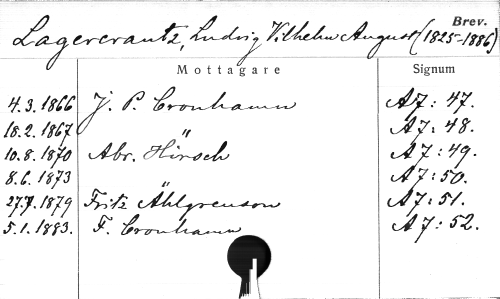 Brev.
Lagercrantz, Ludvig Vilhelm August (1825-1886)
Mottagare Signum
4.3.1866 J. P. Cronhamn A7:47.
18.2.1867 " A7:48.
10.8.1870 Abr. Hirsch A7:49.
8.6.1873 " A7:50.
27.7.1879 Fritz Åhlgrenson A7:51.
5.1.1883. F. Cronhamn A7:52.